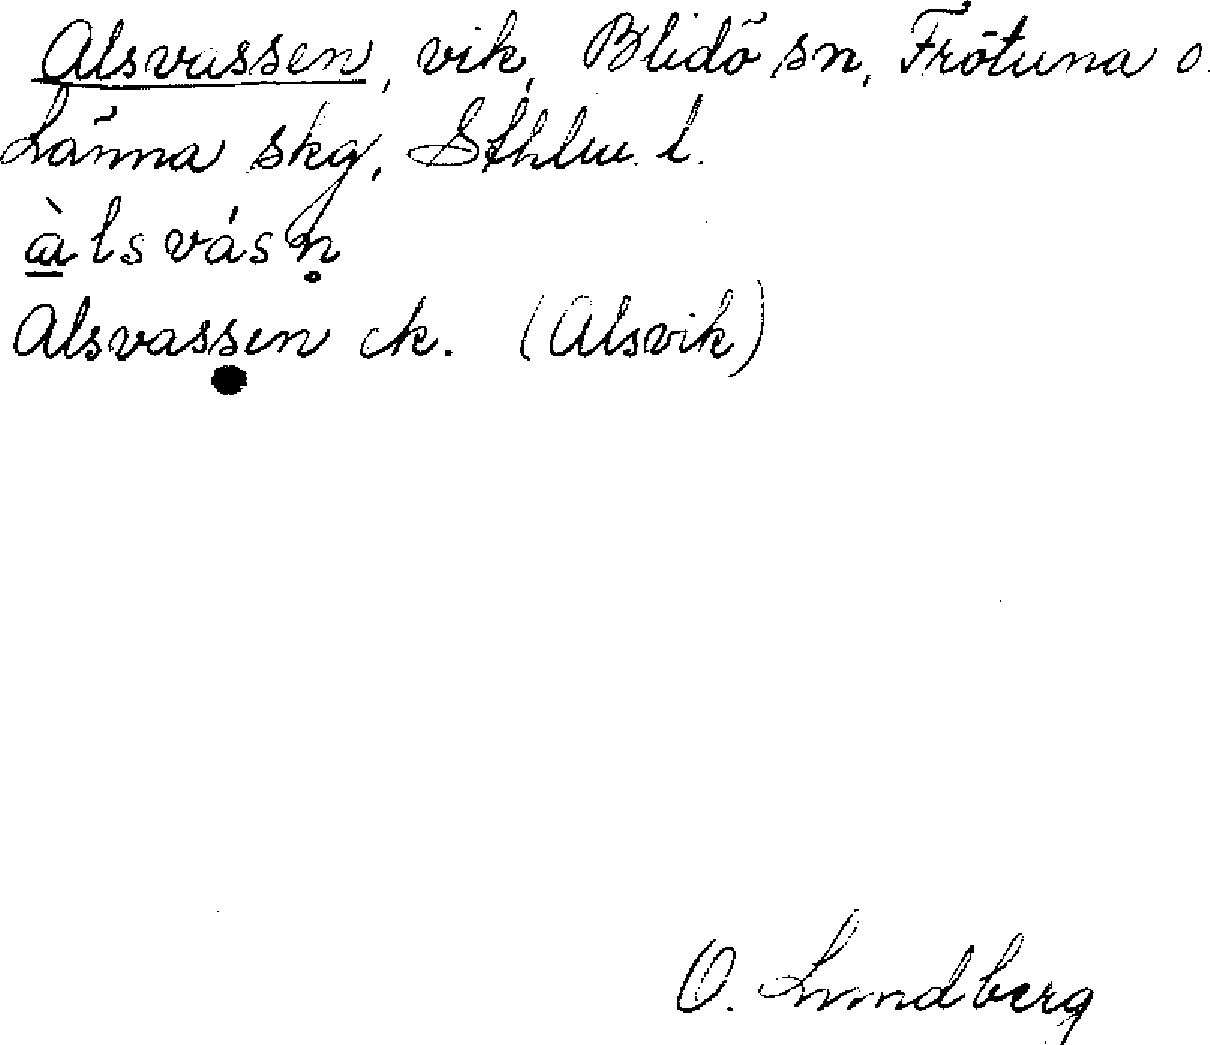 Alsvassen, vik, Blidö sn, Frötuna o.
Länna skg, Sthlm. l.
àlsvásn̥
Alsvassen ek. (Alsvik)
O. Lundberg